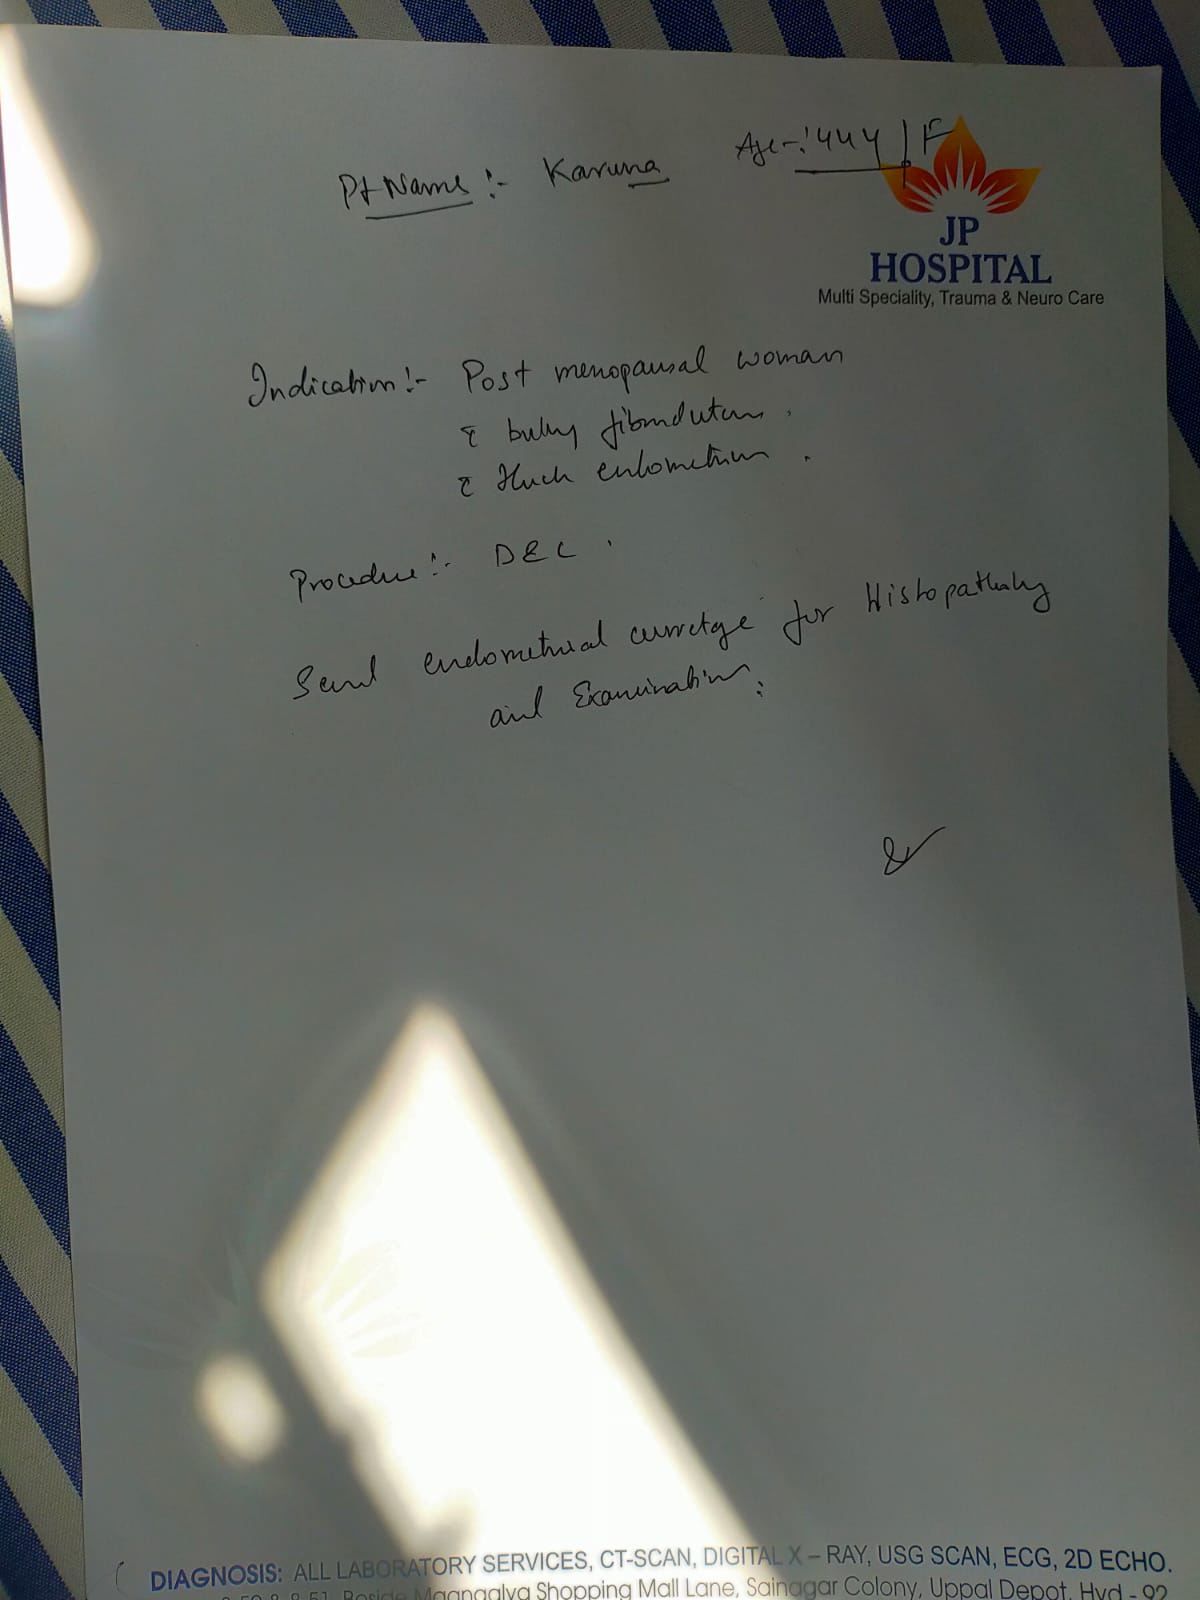 Pt Name :- Karuna Age :- 44y / F
JP
HOSPITAL
Multi Speciality, Trauma & Neuro Care
Indication :- Post menopausal woman
c̄ bulky fibroid uterus.
c̄ thick endometrium.
Procedure :- D&C.
Send endometrial curretage for Histopathology
and Examination.
DIAGNOSIS: ALL LABORATORY SERVICES, CT-SCAN, DIGITAL X – RAY, USG SCAN, ECG, 2D ECHO.
Beside Maangalya Shopping Mall Lane, Sainagar Colony, Uppal Depot, Hyd - 92